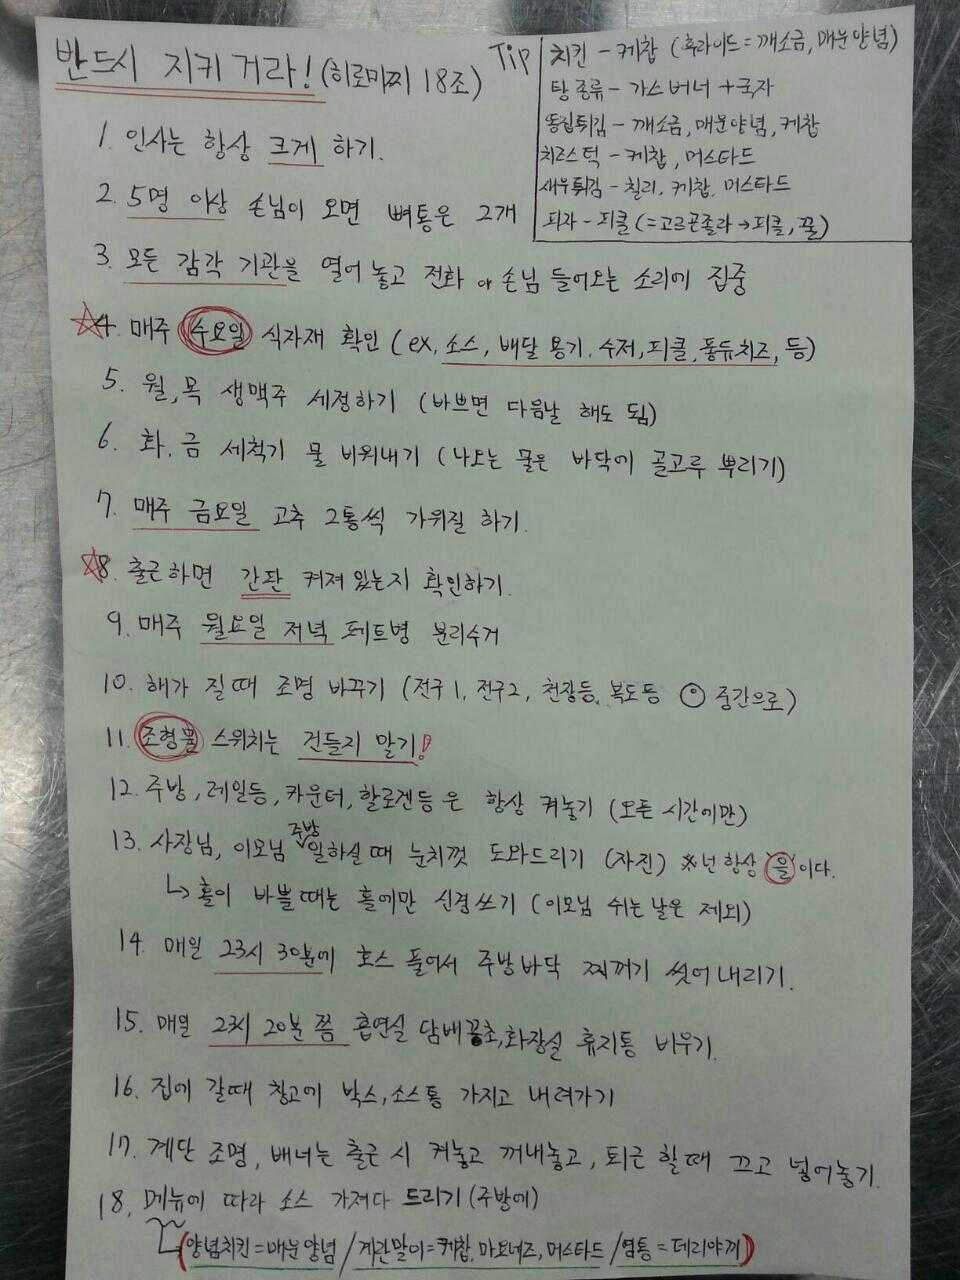 반드시 지키거라! (히로미찌 18조)
Tip
치킨 - 케찹 (후라이드 = 깨소금, 매운양념)
탕 종류 - 가스버너 + 국자
똥집튀김 - 깨소금, 매운양념, 케찹
치즈스틱 - 케찹, 머스타드
새우튀김 - 칠리, 케찹, 머스타드
피자 - 피클 (=고르곤졸라 → 피클, 꿀)
1. 인사는 항상 크게 하기.
2. 5명 이상 손님이 오면 뼈통은 2개
3. 모든 감각 기관을 열어 놓고 전화 or 손님 들어오는 소리에 집중
☆4. 매주 수요일 식자재 확인 (ex. 소스, 배달 용기, 수저, 피클, 퐁듀치즈, 등)
5. 월, 목 생맥주 세정하기 (바쁘면 다음날 해도 됨)
6. 화, 금 세척기 물 비워내기 (나오는 물은 바닥에 골고루 뿌리기)
7. 매주 금요일 고추 2통씩 가위질 하기.
☆8. 출근하면 간판 켜져 있는지 확인하기.
9. 매주 월요일 저녁 페트병 분리수거
10. 해가 질 때 조명 바꾸기 (전구1, 전구2, 천장등, 복도등 ⊙ 중간으로)
11. 조형물 스위치는 건들지 말기!
12. 주방, 레일등, 카운터, 할로겐등은 항상 켜놓기 (오픈 시간에만)
13. 사장님, 이모님 주방 일하실 때 눈치껏 도와드리기 (자진) ※넌 항상 '을' 이다.
↳ 홀이 바쁠 때는 홀에만 신경쓰기 (이모님 쉬는 날은 제외)
14. 매일 23시 30분에 호스 틀어서 주방바닥 찌꺼기 씻어내리기.
15. 매일 23시 20분 쯤 흡연실 담배꽁초, 화장실 휴지통 비우기.
16. 집에 갈때 창고에 박스, 소스통 가지고 내려가기
17. 계단 조명, 배너는 출근 시 켜놓고 꺼내놓고, 퇴근 할 때 끄고 넣어놓기.
18. 메뉴에 따라 소스 가져다 드리기 (주방에)
(양념치킨 = 매운양념 / 계란말이 = 케찹, 마요네즈, 머스타드 / 염통 = 데리야끼)